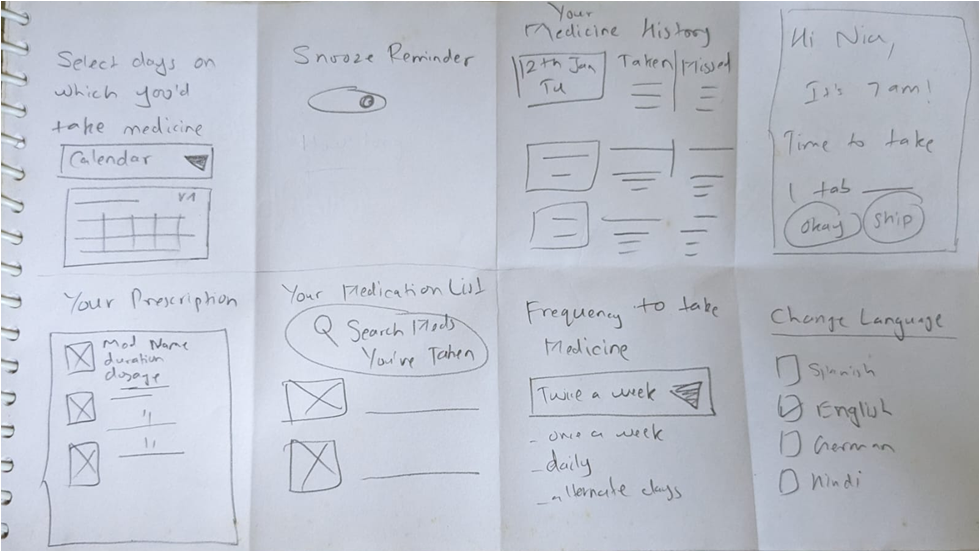 Select days on
which you'd
take medicine
Calendar
Snooze Reminder
Your
Medicine History
12th Jan
Tu
Taken
Missed
Hi Nick,
It's 7 am!
Time to take
1 tab
Okay
Skip
Your Prescription
Med Name
duration
dosage
Your Medication List
Search Meds
You've Taken
Frequency to take
Medicine
Twice a week
- once a week
- daily
- alternate days
Change Language
Spanish
English
German
Hindi